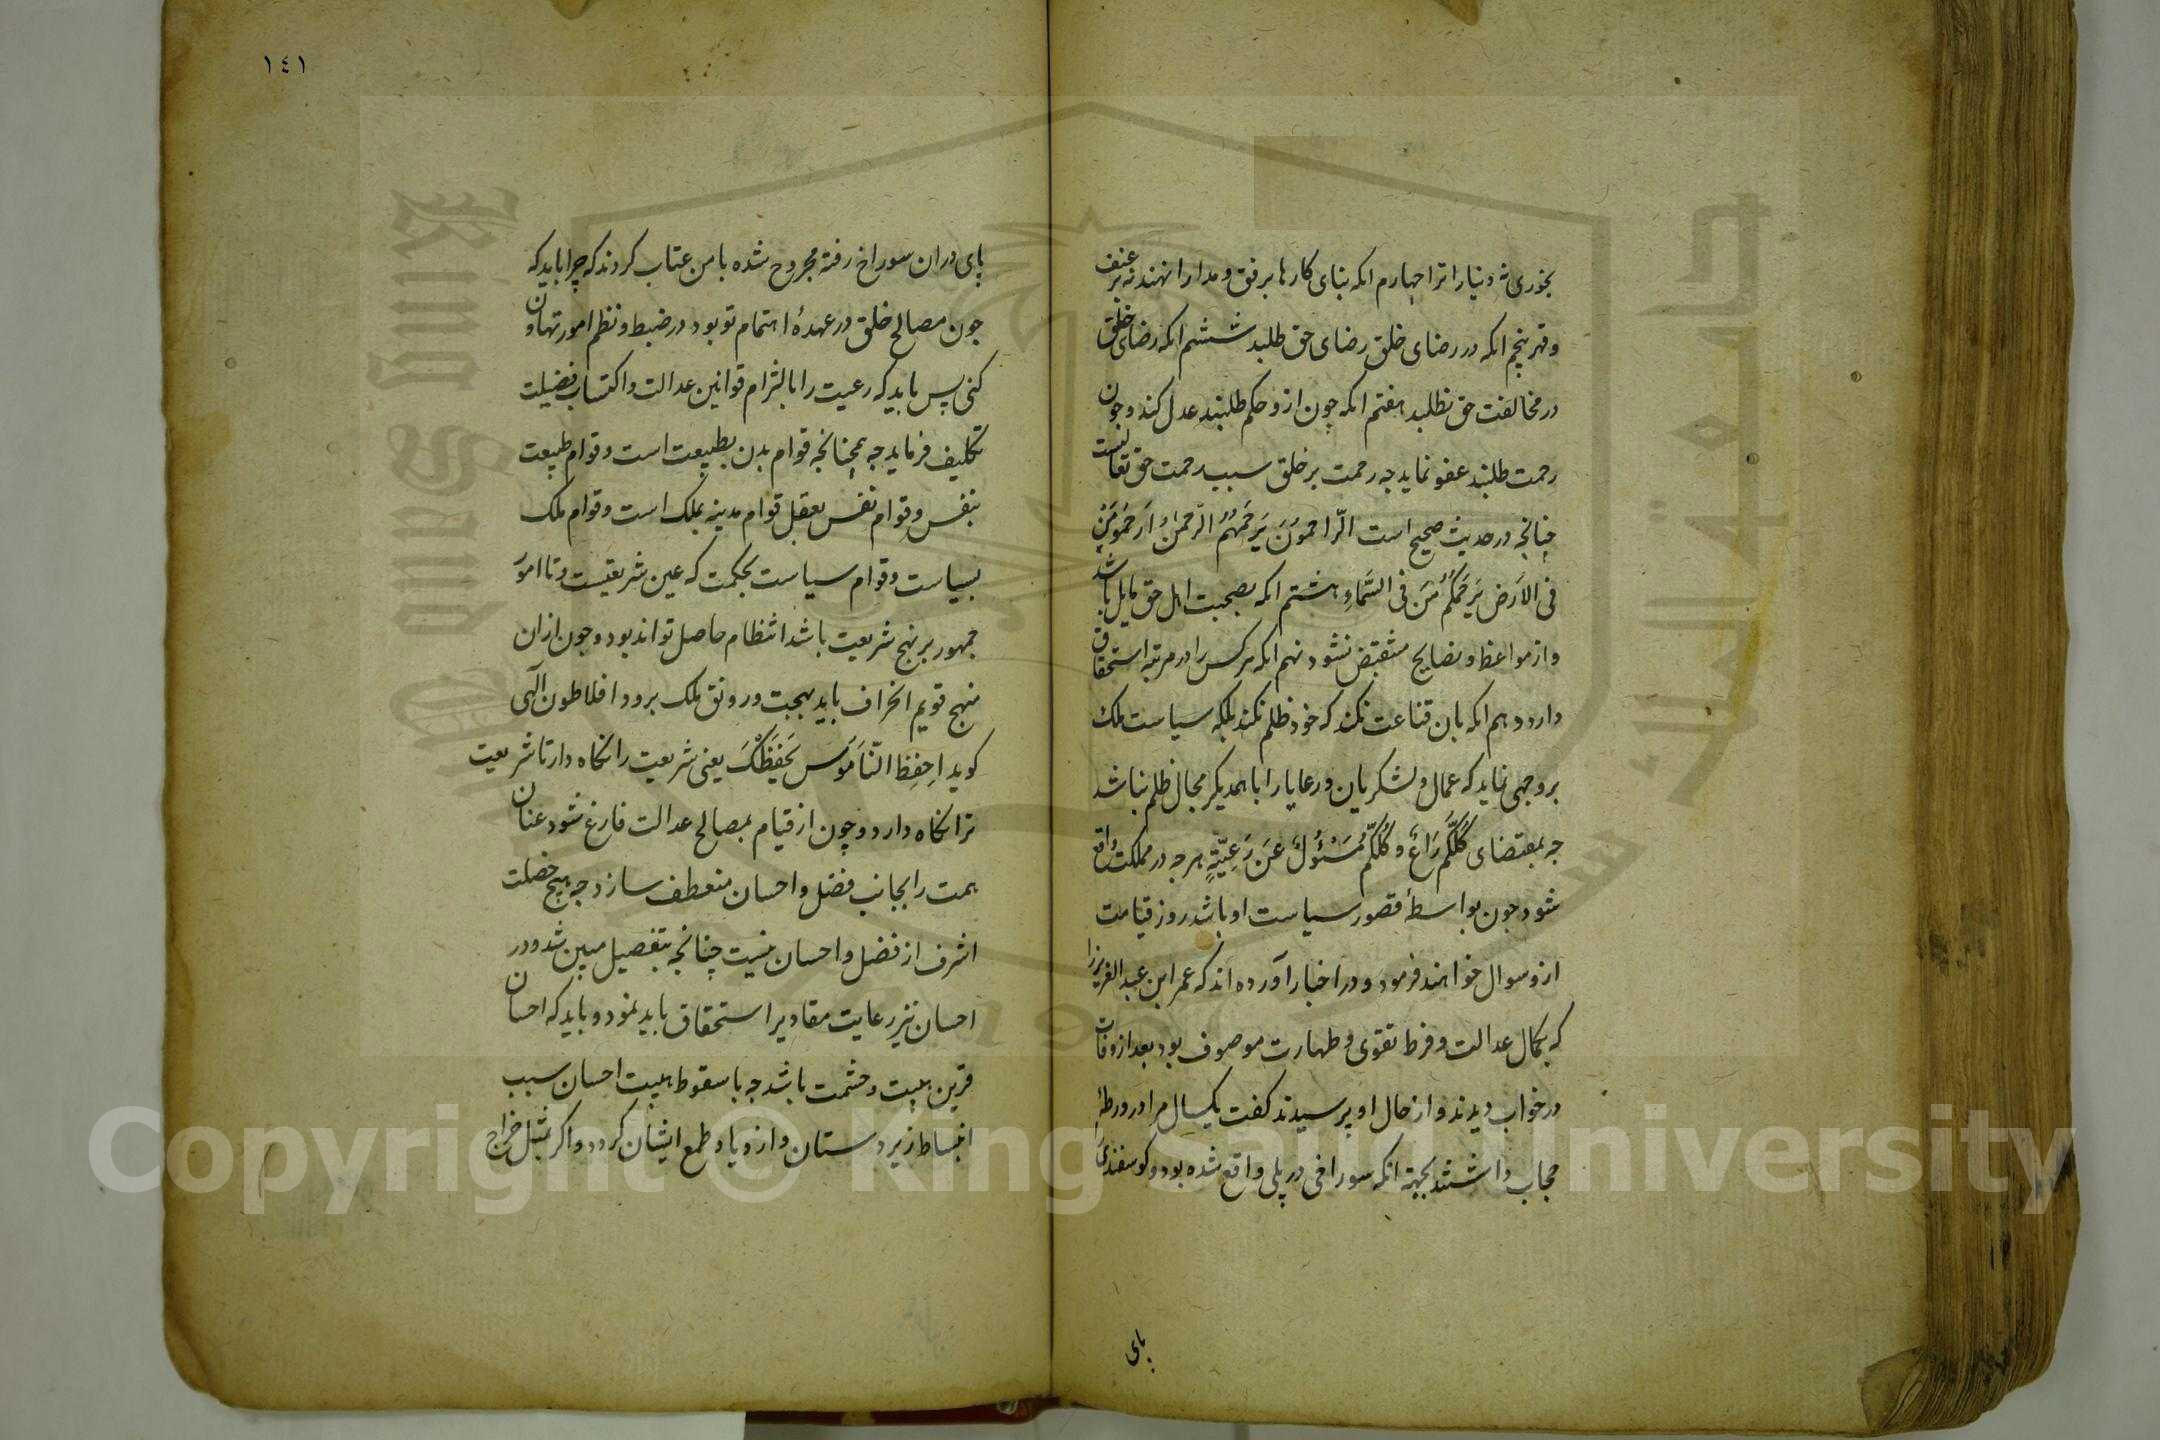 بخوری نه دنیا را ترا چهارم انکه بنای کارها بر رفق و مدارا نهند نه بر عنف
و قهر پنجم انکه در رضای خلق رضای حق طلبد ششم انکه رضای خلق
در مخالفت حق نطلبد هفتم انکه چون ازو حکم طلبند عدل کند و چون
رحمت طلبند عفو نماید جه رحمت بر خلق سبب رحمت حق تعالیست
چنانچه در حدیث صحیح است الرّاحمونَ یَرحَمهُم الرّحمنُ ارحَمُو مَن
فی الاَرض یَرحَمکُم مَن فی السَّماءِ هشتم انکه بصحبت اهل حق مایل باشد
و از مواعظ و نصایح منقبض نشود نهم انکه هر کس را در مرتبه استحقاق
دارد دهم انکه بان قناعت نکند که خود ظلم نکند بلکه سیاست ملک
بر وجهی نماید که عمال و لشکریان و رعایا را با همدیکر مجال ظلم نباشد
جه بمقتضای کُلّکُم رَاعٍ و کُلّکُم مَسْئُولٌ عَن رَعِیّتِهِ هر جه در مملکت واقع
شود جون بواسطهٔ قصور سیاست او باشد روز قیامت
ازو سوال خواهند فرمود و در اخبار آورده اند که عمر ابن عبد العزیز را
که بکمال عدالت و فرط تقوی و طهارت موصوف بود بعد از وفات
در خواب دیدند و از حال او پرسیدند کفت یکسال مرا در ورطهٔ
حجاب داشتند بجهة انکه سوراخی در پلی واقع شده بود و کوسفندی
پای
١٤١
پای در ان سوراخ رفته مجروح شده با من عتاب کردند که چرا باید که
جون مصالح خلق در عهدهٔ اهتمام تو بود در ضبط و نظم امور تهاون
کنی پس باید که رعیت را با لتزام قوانین عدالت و اکتساب فضیلت
تکلیف فرماید جه همچنانچه قوام بدن بطبیعت است و قوام طبیعت
بنفس و قوام نفس بعقل قوام مدینه بملک است و قوام ملک
بسیاست و قوام سیاست بحکمت که عین شریعتست و تا امور
جمهور بر نهج شریعت باشد انتظام حاصل تواند بود و جون ازان
منهج قویم انحراف یابد بهجت و رونق ملک برود افلاطون الهی
کوید اِحفِظِ النّاموسَ یَحفَظْکَ یعنی شریعت را نکاه دار تا شریعت
ترا نکاه دارد و چون از قیام بمصالح عدالت فارغ شود عنان
همت را بجانب فضل و احسان منعطف سازد جه هیچ خصلت
اشرف از فضل و احسان نیست چنانچه بتفصیل مبین شد و در
احسان نیز رعایت مقادیر استحقاق باید نمود و باید که احسان
قرین هیبت و حشمت باشد جه با سقوط هیبت احسان سبب
انبساط زیر دستان و ازدیاد طمع ایشان کردد و اکر بمثل خراج
Copyright © King Saud University